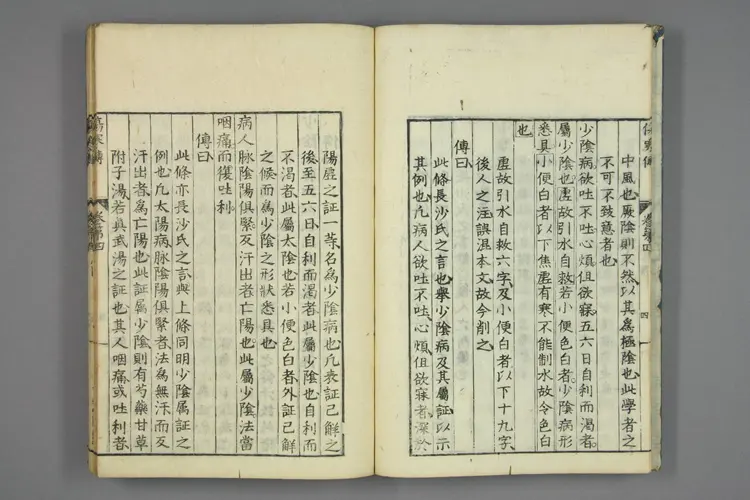 中風也厥陰則不然以其爲極陰也此學者之
不可不致意者也
少陰病欲吐不吐心煩但欲寐五六日自利而渴者
屬少陰也虛故引水自救若小便色白者少陰病形
悉具小便白者以下焦虛有寒不能制水故令色白
也
虛故引水自救六字及小便白者以下十九字
後人之注誤混本文故今削之
傳曰
此條長沙氏之言也擧少陰病及其屬証以示
其例也凡病人欲吐不吐心煩但欲寐者深於
四
陽虛之証一等名爲少陰病也凡表証已解之
後至五六日自利而渴者此屬少陰也自利而
不渴者此屬太陰也若小便色白者外証已解
之候而爲少陰之形狀悉具也
病人脉陰陽俱緊反汗出者亡陽也此屬少陰法當
咽痛而復吐利
傳曰
此條亦長沙氏之言與上條同明少陰属証之
例也凡太陽病脉陰陽俱緊者法爲無汗而反
汗出者爲亡陽也此証属少陰則有芍藥甘草
附子湯若眞武湯之証也其人咽痛或吐利者
傷寒傳
卷第四